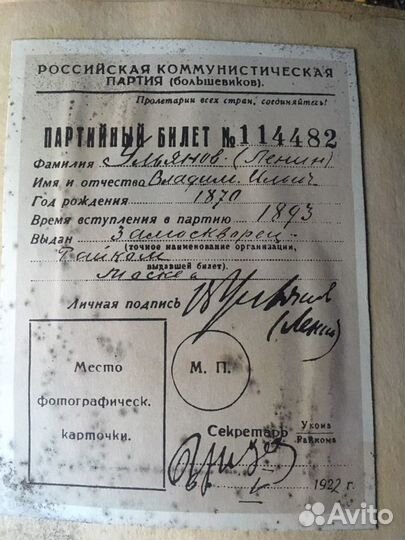 РОССИЙСКАЯ КОММУНИСТИЧЕСКАЯ
ПАРТИЯ (большевиков).
Пролетарии всех стран, соединяйтесь!
ПАРТИЙНЫЙ БИЛЕТ № 114482
Фамилия Ульянов (Ленин)
Имя и отчество Владим. Ильич
Год рождения 1870
Время вступления в партию 1893
Выдан Замоскворец-
(точное наименование организации,
Райком
выдавшей билет).
Москва
Личная подпись В Ульянов
(Ленин)
Место
фотографическ.
карточки.
М. П.
Секретарь Укома
Райкома
1922 г.
Avito